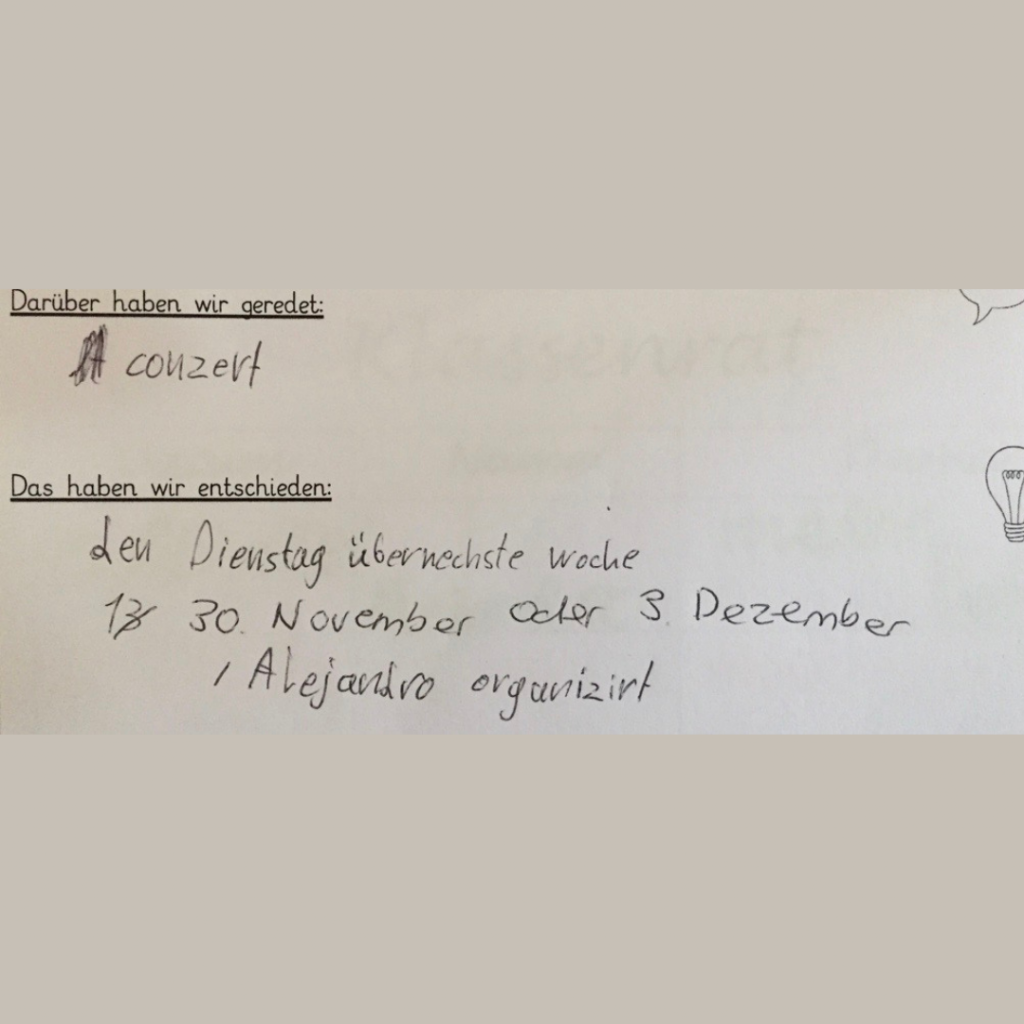 Darüber haben wir geredet:
conzert
Das haben wir entschieden:
den Dienstag übernechste woche
30. November oder 3. Dezember
/ Alejandro organizirt